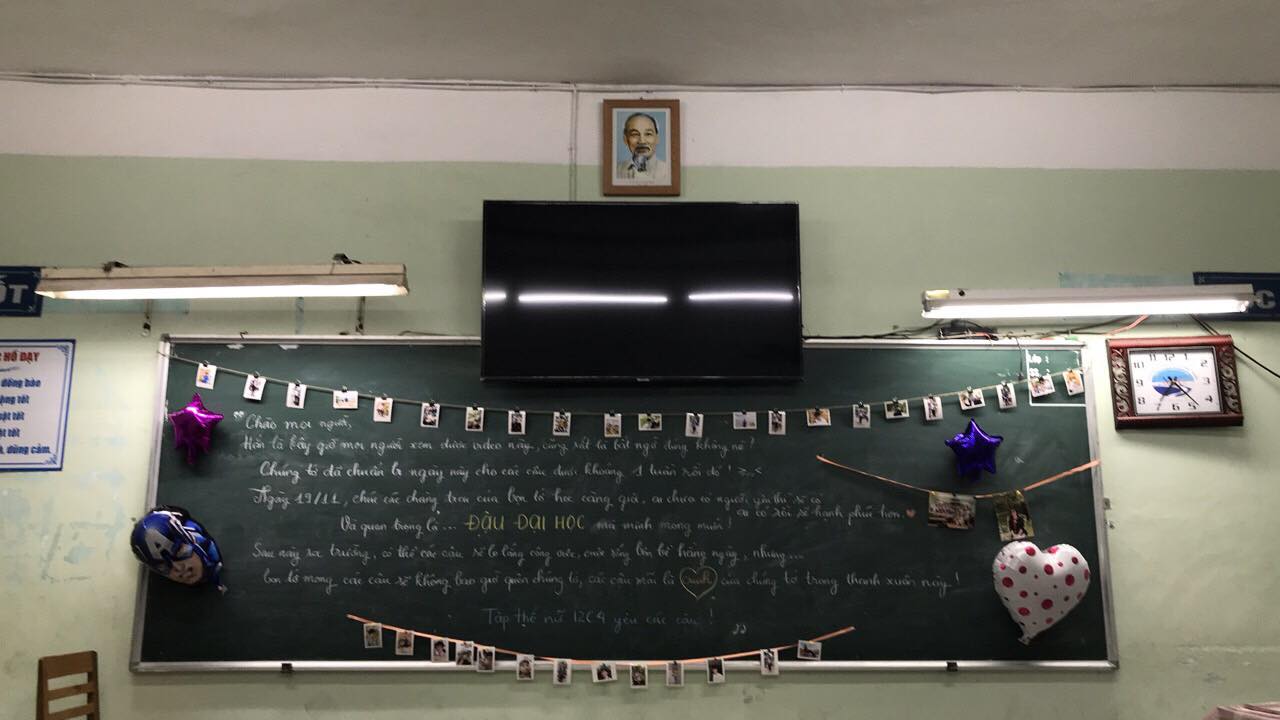 ỐT
C
HỒ DẠY
đồng bào
tốt
tốt
tốt
dũng cảm.
Lớp :
"Chào mọi người,
Hẳn là bây giờ mọi người xem được video này, cũng rất là bất ngờ đúng không nè?
Chúng tớ đã chuẩn bị ngày này cho các cậu dưới khoảng 1 tuần rồi đó ! >.<
Ngày 19/11, chúc các chàng trai của bọn tớ học càng giỏi, ai chưa có người yêu thì sẽ có
ai có rồi sẽ hạnh phúc hơn.
Và quan trọng là ... ĐẬU ĐẠI HỌC mà mình mong muốn !
Sau này ra trường, có thể các cậu sẽ lo lắng công việc, cuộc sống bộn bề hằng ngày, nhưng...
bọn tớ mong các cậu sẽ không bao giờ quên chúng tớ, các cậu mãi là của chúng tớ trong thanh xuân này !
Tập thể nữ 12C4 yêu các cậu !
"
12
1
2
3
4
5
6
7
8
9
10
11